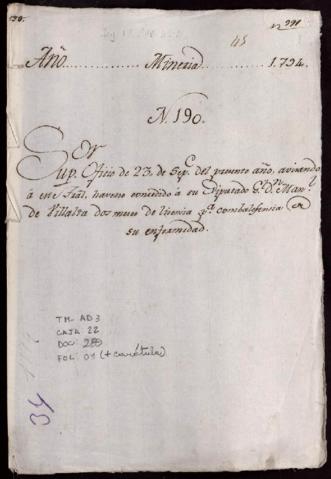 Año Mineria 1.794.
N. 190.
Sor
Sup. Oficio de 23, de Sepe. del presente año, avisando
á este Tral, haverse concedido á su Diputado Gl. Dn. Manl.
de Villalta dos meses de licencia pa. combalesencia de
su enfermedad.
TM-AD3
CAJA 22
DOC: 289
FOL: 01 (+ carátula)